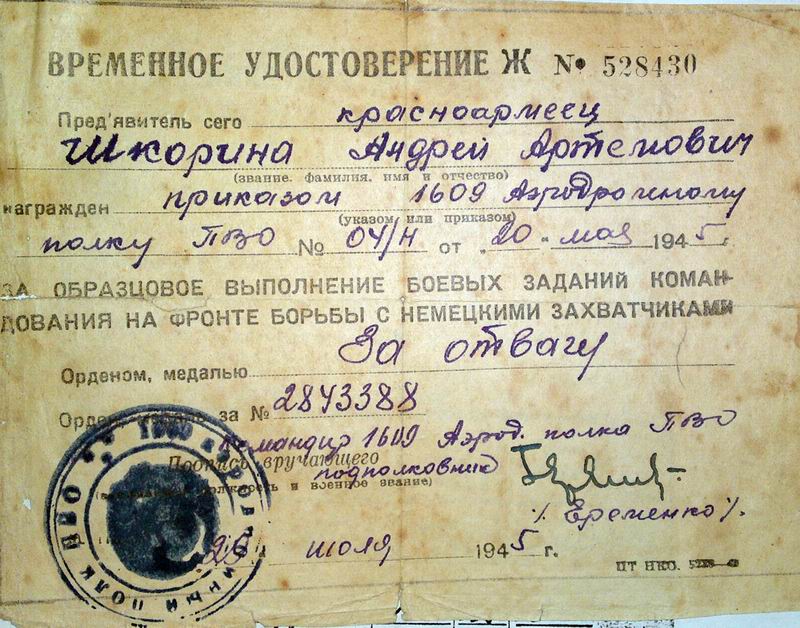 ВРЕМЕННОЕ УДОСТОВЕРЕНИЕ Ж № 528430
Пред'явитель сего красноармеец
Шкорина Андрей Артемович
(звание, фамилия, имя и отчество)
награжден приказом 1609 Аэродромному
(указом или приказом)
полку ПВО № 04/Н от „20" мая 1945 г.
ЗА ОБРАЗЦОВОЕ ВЫПОЛНЕНИЕ БОЕВЫХ ЗАДАНИЙ КОМАН-
ДОВАНИЯ НА ФРОНТЕ БОРЬБЫ С НЕМЕЦКИМИ ЗАХВАТЧИКАМИ
Орденом, медалью За отвагу
за № 2843388
Командир 1609 Аэрод. полка ПВО
Подпись вручающего подполковник
и военное звание)
/. Еременко /.
июля 1945 г.
ПТ НКО.
ПОЛК ПВО